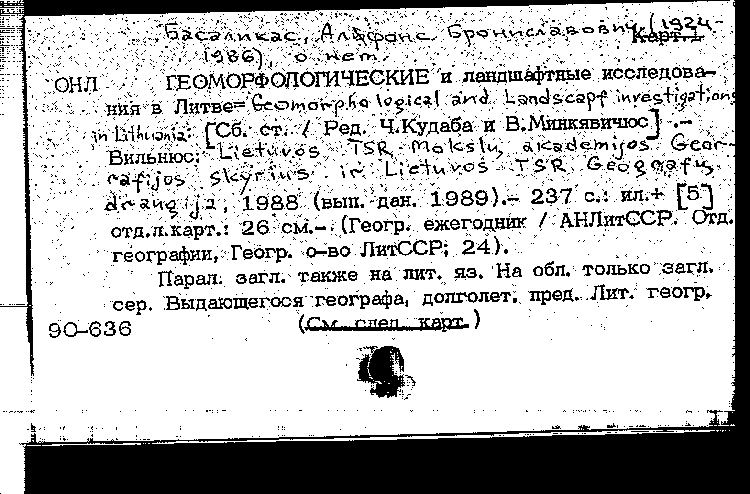 Басаликас, Альфонс Брониславович (1924-
1986), о нем. Карт. 1
ОНЛ ГЕОМОРФОЛОГИЧЕСКИЕ и ландшафтные исследова-
ния в Литве=Geomorphological and Landscape investigations
in Lithuania: [Сб. ст. / Ред. Ч.Кудаба и В.Минкявичюс] .-
Вильнюс: Lietuvos TSR Mokslų akademijos Geog-
rafijos skyrius ir Lietuvos TSR Geografų
draugija, 1988 (вып. дан. 1989).- 237 с.: ил.+ [5]
отд.л.карт.: 26 см.-.(Геогр. ежегодник / АНЛитССР. Отд.
географии, Геогр. о-во ЛитССР; 24).
Парал. загл. также на лит. яз. На обл. только загл.
сер. Выдающегося географа, долголет. пред. Лит. геогр.
90-636 (См. след. карт.)